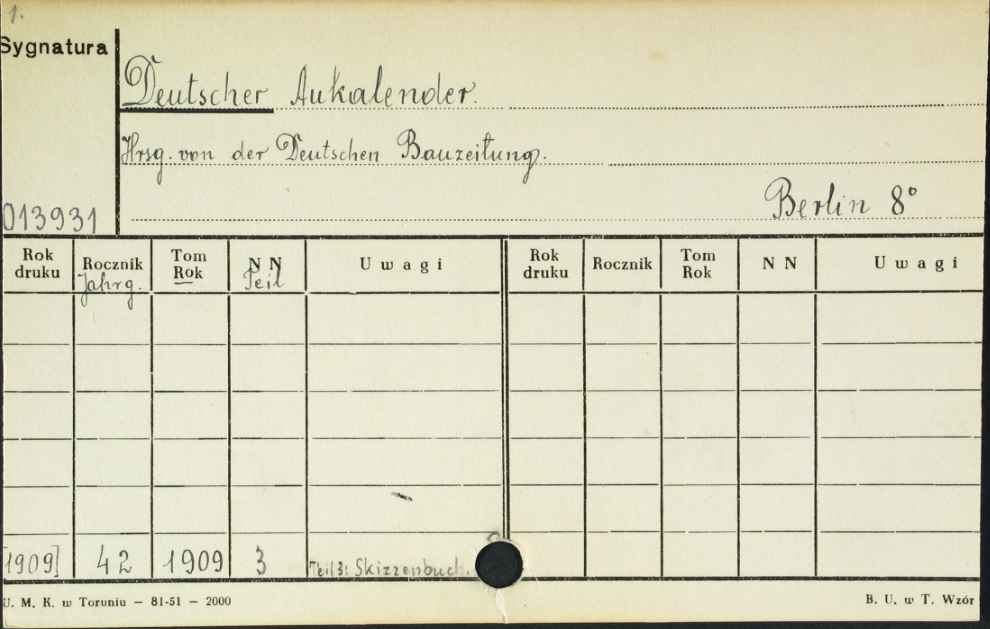 1.
Sygnatura
Deutscher Aukalender.
Hrsg. von der Deutschen Bauzeitung.
013931
Berlin 8°
Rok druku Rocznik Jahrg. Tom Rok N N Teil Uwagi Rok druku Rocznik Tom Rok N N Uwagi
[1909] 42 1909 3 Teil 3: Skizzenbuch.
U. M. K. w Toruniu — 81-51 — 2000 B. U. w T. Wzór